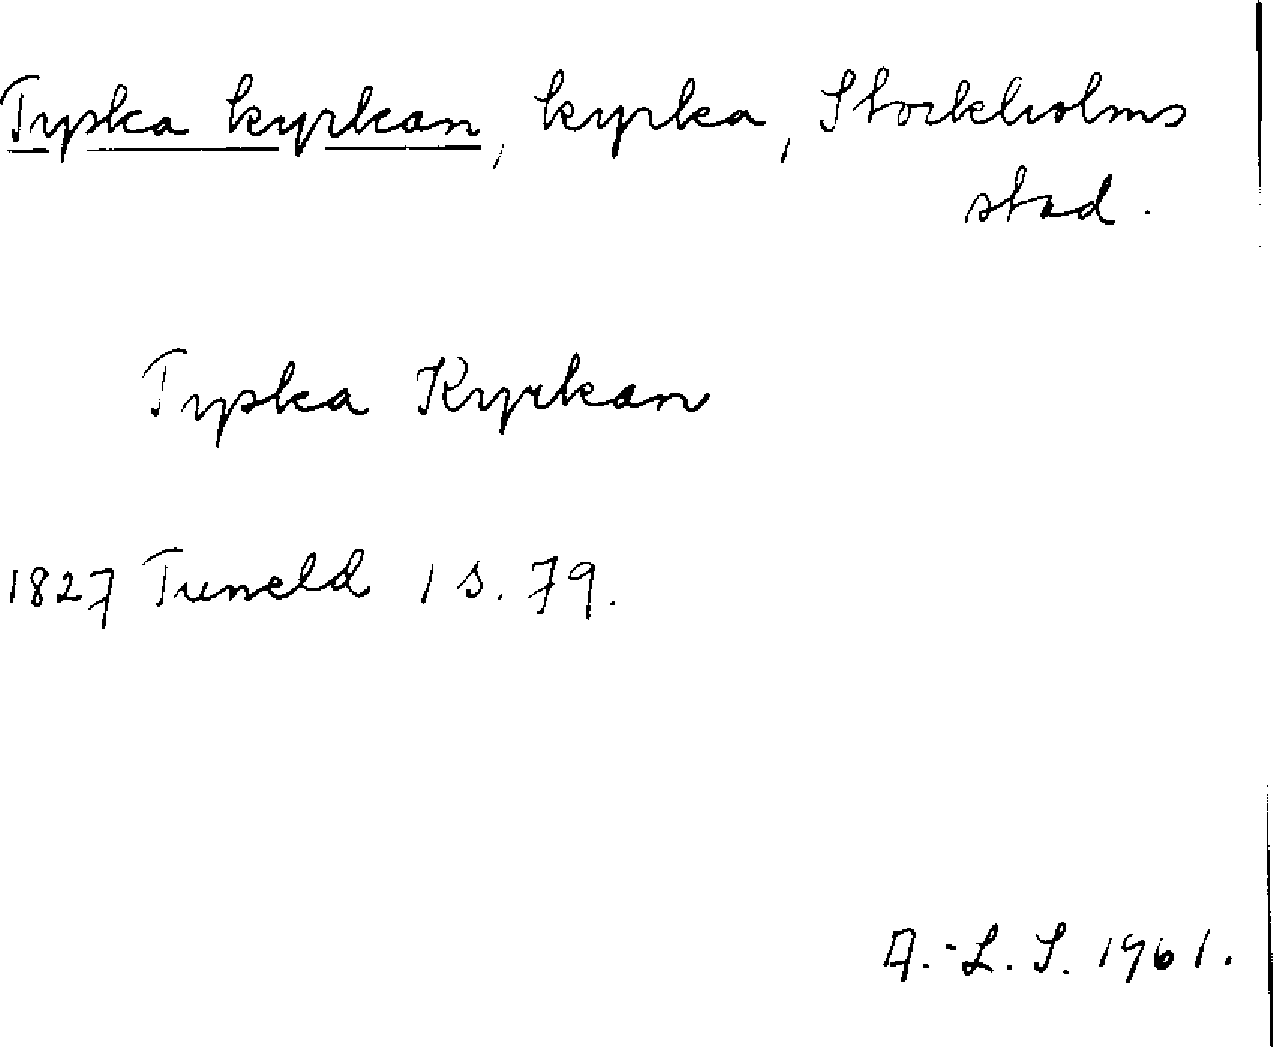 Tyska kyrkan, kyrka, Stockholms
stad.
Tyska Kyrkan
1827 Tuneld 1 s. 79.
A.-L. S. 1961.